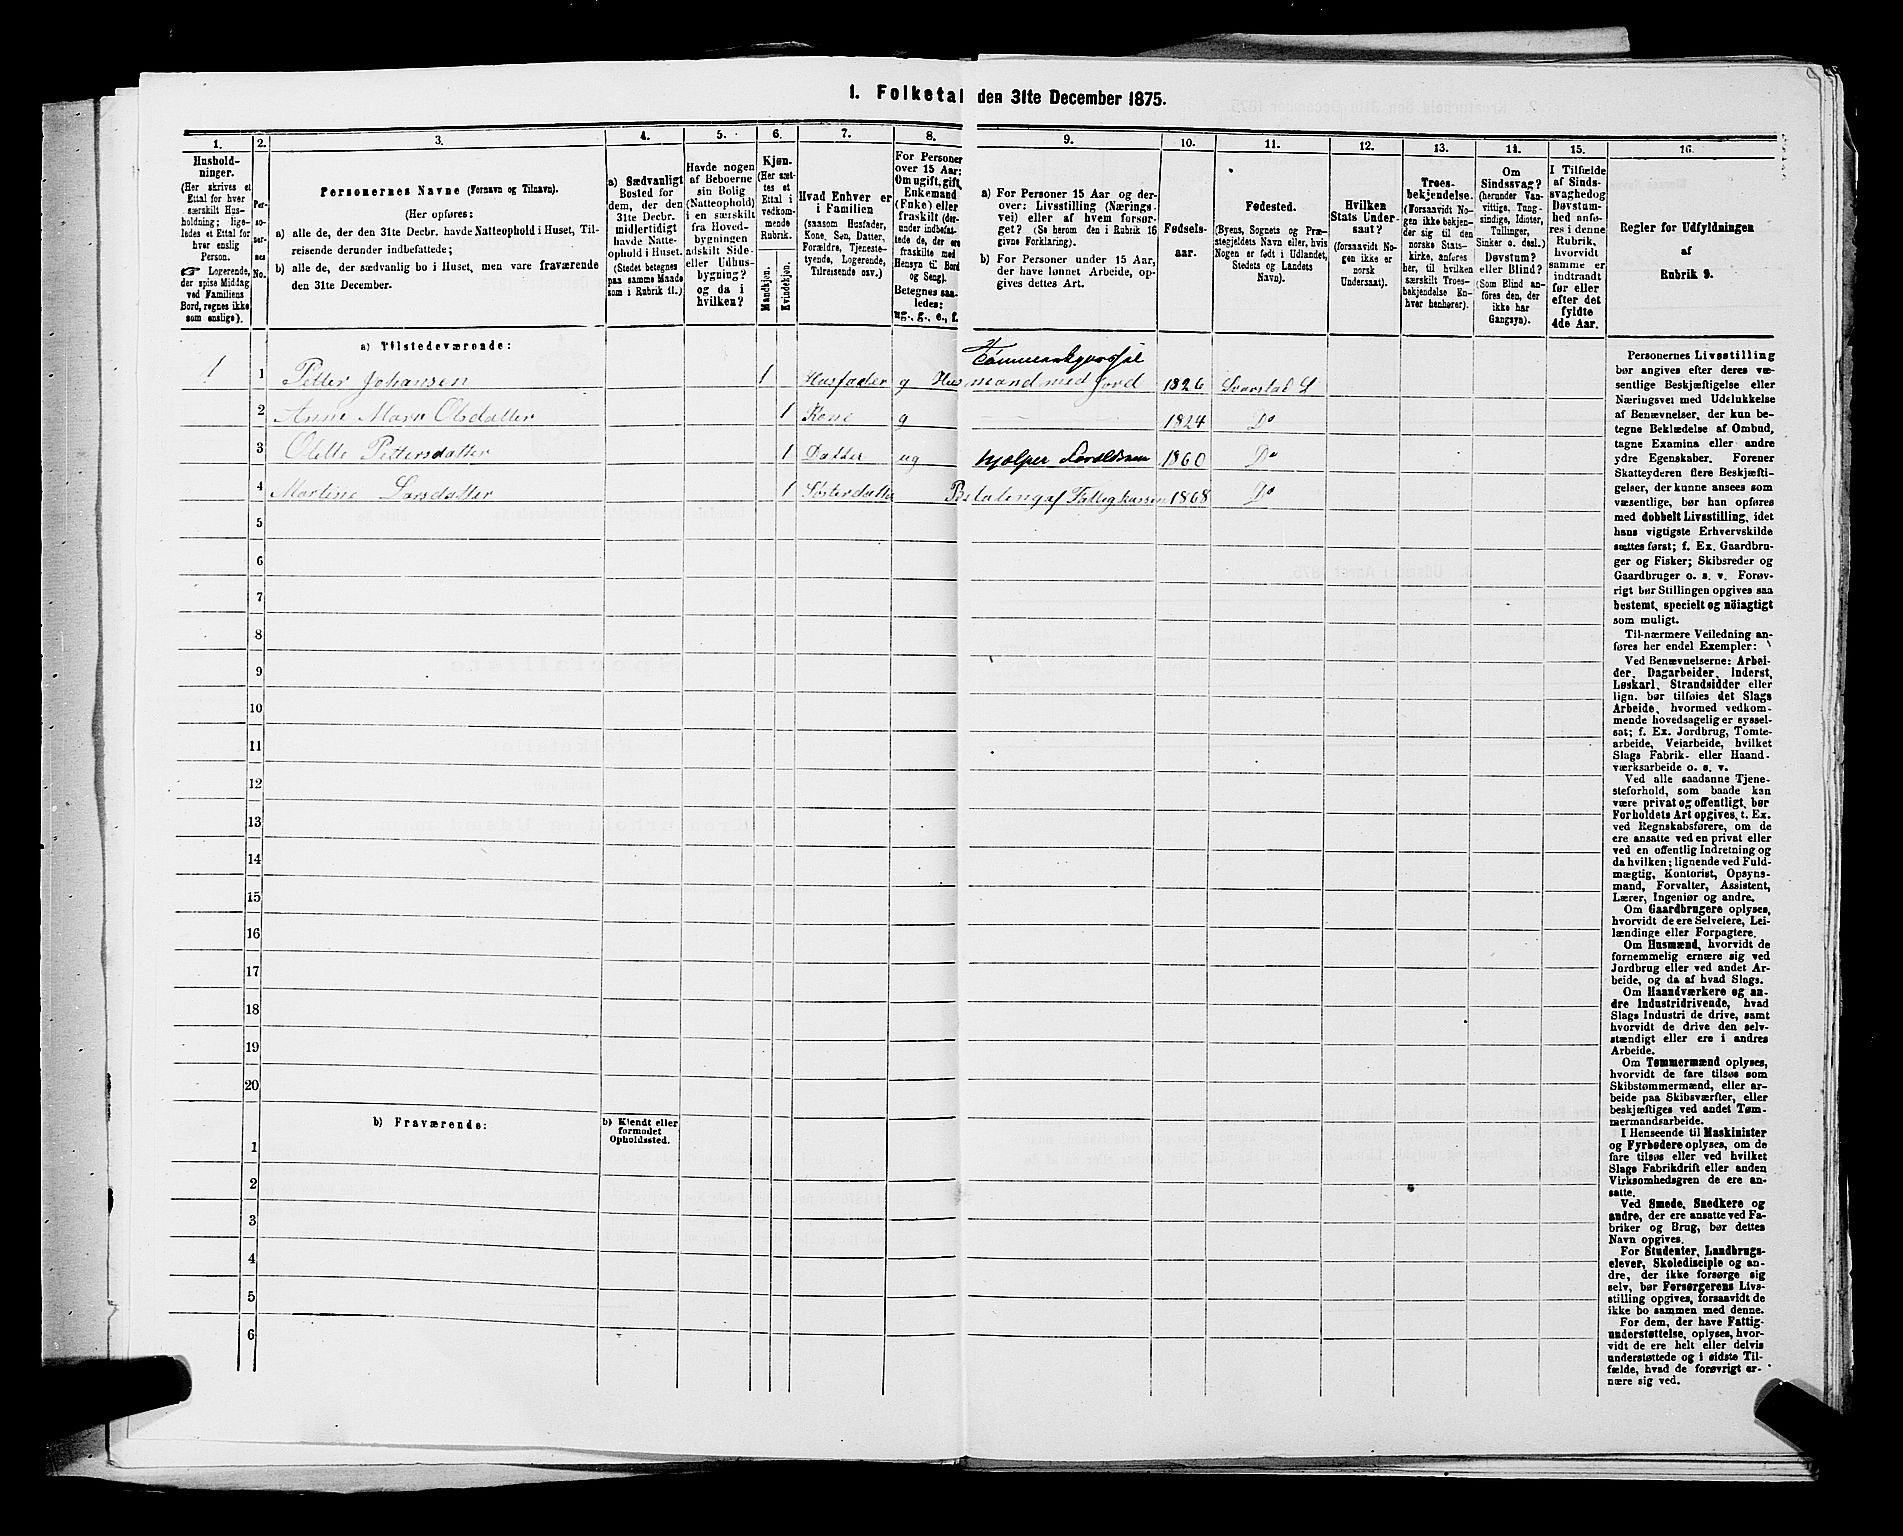 1. Folketal den 31te December 1875.
1. 2. 3. 4. 5. 6. 7. 8. 9. 10. 11. 12. 13. 14. 15. 16.
Hushold-
ninger.
(Her skrives et
Ettal for hver
særskilt Hus-
holdning; lige-
ledes et Ettal for
hver enslig
Person.
☞ Logerende,
der spise Middag
ved Familiens
Bord, regnes ikke
som enslige).
Per-
so-
ner-
nes
No.
Personernes Navne (Fornavn og Tilnavn).
(Her opføres:
a) alle de, der den 31te Decbr. havde Natteophold i Huset, Til-
reisende derunder indbefattede;
b) alle de, der sædvanlig bo i Huset, men vare fraværende
den 31te December.
a) Sædvanligt
Bosted for
dem, der den
31te Decbr.
midlertidigt
havde Natte-
ophold i Huset.
(Stedet betegnes
paa samme Maade
som i Rubrik 11.)
Havde nogen
af Beboerne
sin Bolig
(Natteophold)
i en særskilt
fra Hoved-
bygningen
adskilt Side-
eller Udhus-
bygning?
og da i
hvilken?
Kjøn.
(Her sæt-
tes et
Ettal i
vedkom-
mende
Rubrik.
Mandkjøn.
Kvindekjøn.
Hvad Enhver er
i Familien
(saasom Husfader,
Kone, Søn, Datter,
Forældre, Tjeneste-
tyende, Logerende,
Tilreisende osv.)
For Personer
over 15 Aar:
Om ugift, gift,
Enkemand
(Enke) eller
fraskilt (der-
under indbefat-
tede de, der ere
fraskilte med
Hensyn til Bord
og Seng).
Betegnes saa-
ledes:
ug., g., e., f.
a) For Personer 15 Aar og der-
over: Livsstilling (Nærings-
vei) eller af hvem forsør-
get? (Se herom den i Rubrik 16
givne Forklaring).
b) For Personer under 15 Aar,
der have lønnet Arbeide, op-
gives dettes Art.
Fødsels-
aar.
Fødested.
(Byens, Sognets og Præ-
stegjeldets Navn eller, hvis
Nogen er født i Udlandet,
Stedets og Landets
Navn).
Hvilken
Stats Under-
saat?
(forsaavidt No-
gen ikke er
norsk
Undersaat).
Troes-
bekjendelse.
(Forsaavidt No-
gen ikke bekjen-
der sig til den
norske Stats-
kirke, anføres
her, til hvilken
særskilt Troes-
bekjendelse En-
hver henhører).
Om
Sindssvag?
(herunder Van-
vittige, Tung-
sindige, Idioter,
Tullinger,
Sinker o. desl.)
Døvstum?
eller Blind?
(Som Blind an-
føres den, der
ikke har
Gangsyn).
I Tilfælde
af Sinds-
svaghed og
Døvstum-
hed anfø-
res i denne
Rubrik,
hvorvidt
samme er
indtraadt
før eller
efter det
fyldte
4de Aar.
Regler for Udfyldningen
af
Rubrik 9.
a) Tilstedeværende:
Tømmerkjørsel
1 1 Petter Johansen 1 Husfader g Husmand med Jord 1826 Svarstad S
2 Anne Marie Olsdatter 1 Kone g 1824 Do
3 Olette Pettersdatter 1 Datter ug hjælper Forældrene 1860 Do
4 Martine Larsdatter 1 Søsterdatter Betaling af Fattigkassen 1868 Do
5
6
7
8
9
10
11
12
13
14
15
16
17
18
19
20
b) Fraværende:
b) Kjendt eller
formodet
Opholdssted.
1
2
3
4
5
6
Personernes Livsstilling
bør angives efter deres væ-
sentlige Beskjæftigelse eller
Næringsvei med Udelukkelse
af Benævnelser, der kun be-
tegne Beklædelse af Ombud,
tagne Examina eller andre
ydre Egenskaber. Forener
Skatteyderen flere Beskjæfti-
gelser, der kunne ansees som
væsentlige, bør han opføres
med dobbelt Livsstilling, idet
hans vigtigste Erhvervskilde
sættes først; f. Ex. Gaardbru-
ger og Fisker; Skibsreder og
Gaardbruger o. s. v. Forøv-
rigt bør Stillingen opgives saa
bestemt, specielt og nöiagtigt
som muligt.
Til nærmere Veiledning an-
føres her endel Exempler:
Ved Benævnelserne: Arbei-
der, Dagarbeider, Inderst,
Løskarl, Strandsidder eller
lign. bør tilføies det Slags
Arbeide, hvormed vedkom-
mende hovedsagelig er syssel-
sat; f. Ex. Jordbrug, Tomte-
arbeide, Veiarbeide, hvilket
Slags Fabrik- eller Haand-
værksarbeide o. s. v.
Ved alle saadanne Tjene-
steforhold, som baade kan
være privat og offentligt, bør
Forholdets Art opgives, t. Ex.
ved Regnskabsførere, om de
ere ansatte ved en privat eller
ved en offentlig Indretning og
da hvilken; lignende ved Fuld-
mægtig, Kontorist, Opsyns-
mand, Forvalter, Assistent,
Lærer, Ingeniør og andre.
Om Gaardbrugere oplyses,
hvorvidt de ere Selveiere, Lei-
lændinge eller Forpagtere.
Om Husmænd, hvorvidt de
fornemmelig ernære sig ved
Jordbrug eller ved andet Ar-
beide, og da af hvad Slags.
Om Haandværkere og an-
dre Industridrivende, hvad
Slags Industri de drive, samt
hvorvidt de drive den selv-
stændigt eller ere i andres
Arbeide.
Om Tømmermænd oplyses,
hvorvidt de fare tilsøs som
Skibstømmermænd, eller ar-
beide paa Skibsværfter, eller
beskjæftiges ved andet Tøm-
mermandsarbeide.
I Henseende til Maskinister
og Fyrbødere oplyses, om de
fare tilsøs eller ved hvilket
Slags Fabrikdrift eller anden
Virksomhedsgren de ere an-
satte.
Ved Smede, Snedkere og
andre, der ere ansatte ved Fa-
briker og Brug, bør dettes
Navn opgives.
For Studenter, Landbrugs-
elever, Skoledisciple og an-
dre, der ikke forsørge sig
selv, bør Forsørgerens Livs-
stilling opgives, forsaavidt de
ikke bo sammen med denne.
For dem, der have Fattig-
understøttelse, oplyses, hvor-
vidt de ere helt eller delvis
understøttede og i sidste Til-
fælde, hvad de forøvrigt er-
nære sig ved.